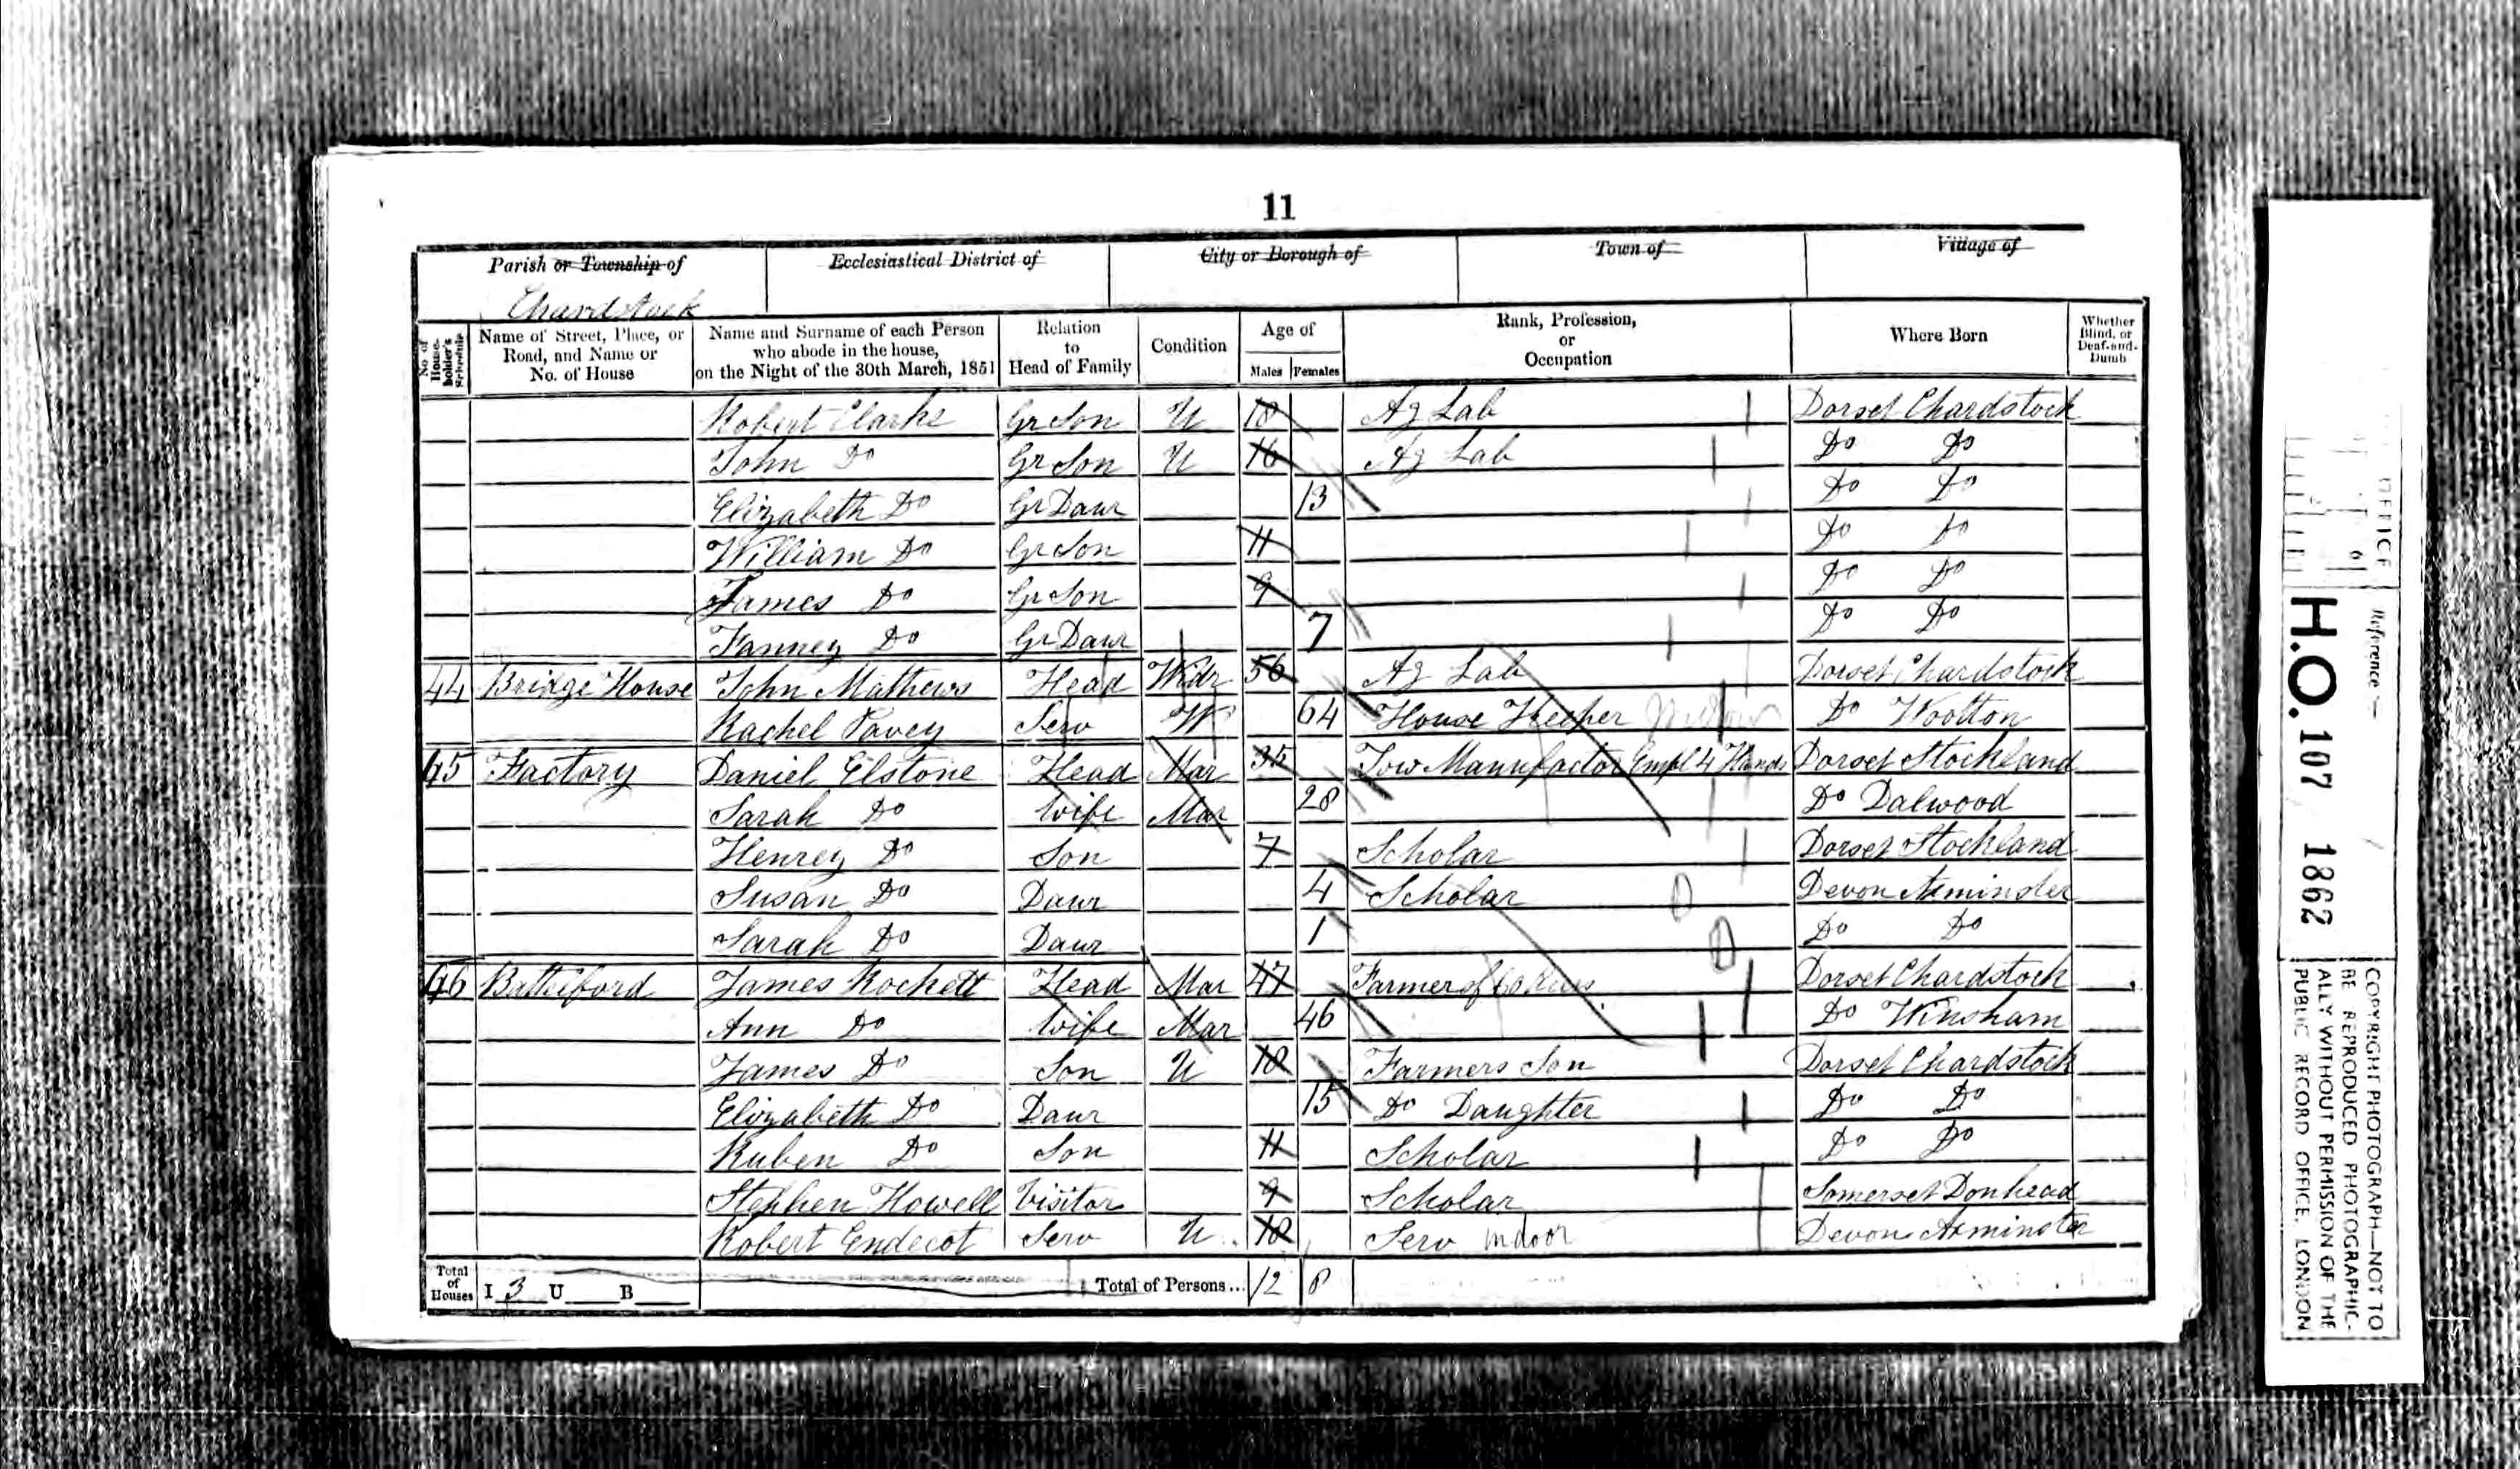 11
Parish or Township of
Ecclesiastical District of
City or Borough of
Town of
Village of
Chardstock
No. of House-holder's Schedule
Name of Street, Place, or Road, and Name or No. of House
Name and Surname of each Person who abode in the house, on the Night of the 30th March, 1851
Relation to Head of Family
Condition
Age of
Males Females
Rank, Profession, or Occupation
Where Born
Whether Blind, or Deaf-and-Dumb
Robert Clarke Gr Son U 18 Ag Lab Dorset Chardstock
John Do Gr Son U 16 Ag Lab Do Do
Elizabeth Do Gr Daur 13 Do Do
William Do Gr Son 11 Do Do
James Do Gr Son 9 Do Do
Fanney Do Gr Daur 7 Do Do
44 Bridge House John Mathews Head Widr 56 Ag Lab Dorset Chardstock
Rachel Pavey Serv W 64 House Keeper Do Wootton
45 Factory Daniel Elstone Head Mar 35 Tow Manufactor Empl 4 Hands Dorset Stockland
Sarah Do Wife Mar 28 Do Dalwood
Henrey Do Son 7 Scholar Dorset Stockland
Susan Do Daur 4 Scholar Devon Axminster
Sarah Do Daur 1 Do Do
46 James Rockett Head Mar 47 Farmer of 60 Acres Dorset Chardstock
Ann Do Wife Mar 46 Do Winsham
James Do Son U 18 Farmers Son Dorset Chardstock
Elizabeth Do Daur 15 Do Daughter Do Do
Ruben Do Son 11 Scholar Do Do
Stephen Howell Visitor 9 Scholar Somerset Donhead
Robert Endecot Serv U 18 Serv indoor Devon Axminster
Total of Houses I 3 U B Total of Persons... 12 8
OFFICE
6
Reference :-
H.O. 107 1862
COPYRIGHT PHOTOGRAPH—NOT TO
BE REPRODUCED PHOTOGRAPHIC-
ALLY WITHOUT PERMISSION OF THE
PUBLIC RECORD OFFICE, LONDON